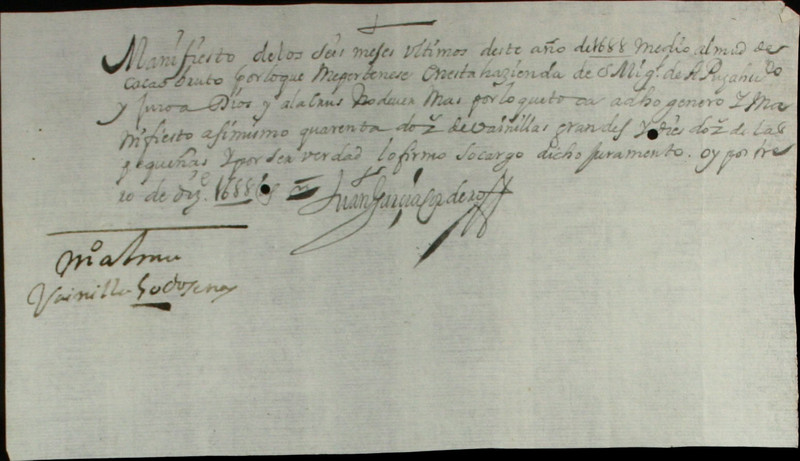 Manifiesto de los seis meses ultimos deste año de 1688 medio almud de
cacao bruto por lo que me pertenese en esta hazienda de S Migl. de
y juro a Dios y a la crus no dever mas por lo que toca a dho genero Y Ma
nifiesto asimismo quarenta doz. de vainillas grandes Y dies doz. de las
pequeñas Y por ser verdad lo firmo socargo dicho juramento. oy postre
ro de dize. 1688 as
Juan Garcia
Mo almu
Vainilla 50 dosenas